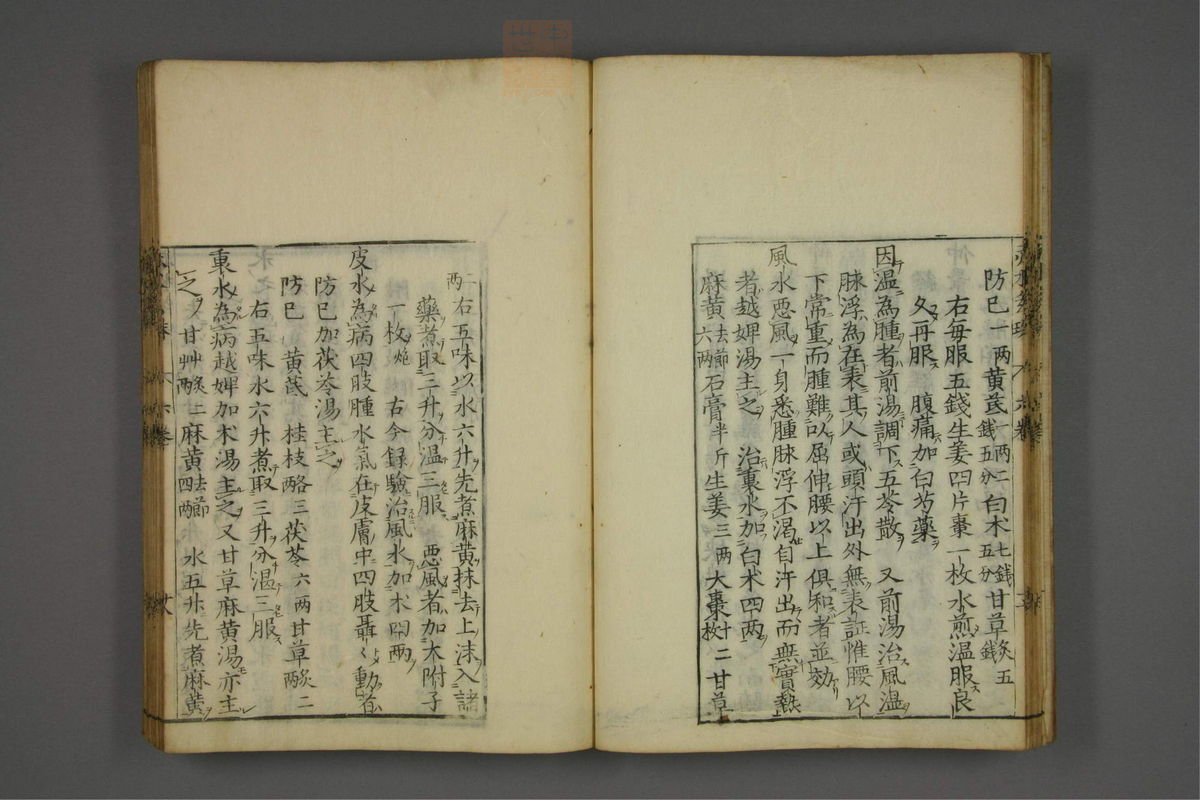 防已一両黄茋一両二銭五分白朮七銭五分甘草炙五銭
右毎服五銭生姜四片棗一枚水煎温服良
久再服　腹痛加白芍薬
因温為腫者前湯調下五苓散　又前湯治風温
脉浮為在表其人或頭汗出外無表証惟腰以
下常重而腫難以屈伸腰以上倶和者並効
風水悪風一身悉腫脉浮不渇自汗出而無實熱
者越婢湯主之　治裏水加白朮四両
麻黄去節六両石膏半斤生姜三両大棗十二枚甘草
二両右五味以水六升先煮麻黄抹去上沫入諸
藥煮取三升分温三服　悪風者加木附子
一枚炮　古今録驗治風水加术四両
皮水為病四肢腫水氣在皮膚中四肢聶〻動者
防巳加茯苓湯主之
防巳　黄茋　桂枝各三両茯苓六両甘草炙二両
右五味水六升煮取三升分温三服
裏水為病越婢加术湯主之又甘草麻黄湯亦主
之　甘艸炙二両麻黄去節四両　水五升先煮麻黄